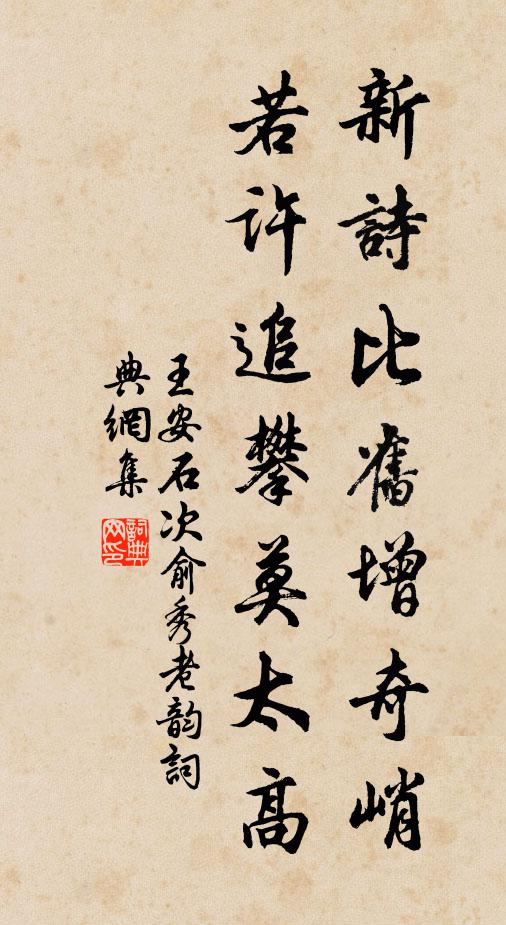 新詩比舊增奇峭
若許追攀莫太高
王安石次俞秀老韵詞
典網集
詞典網印